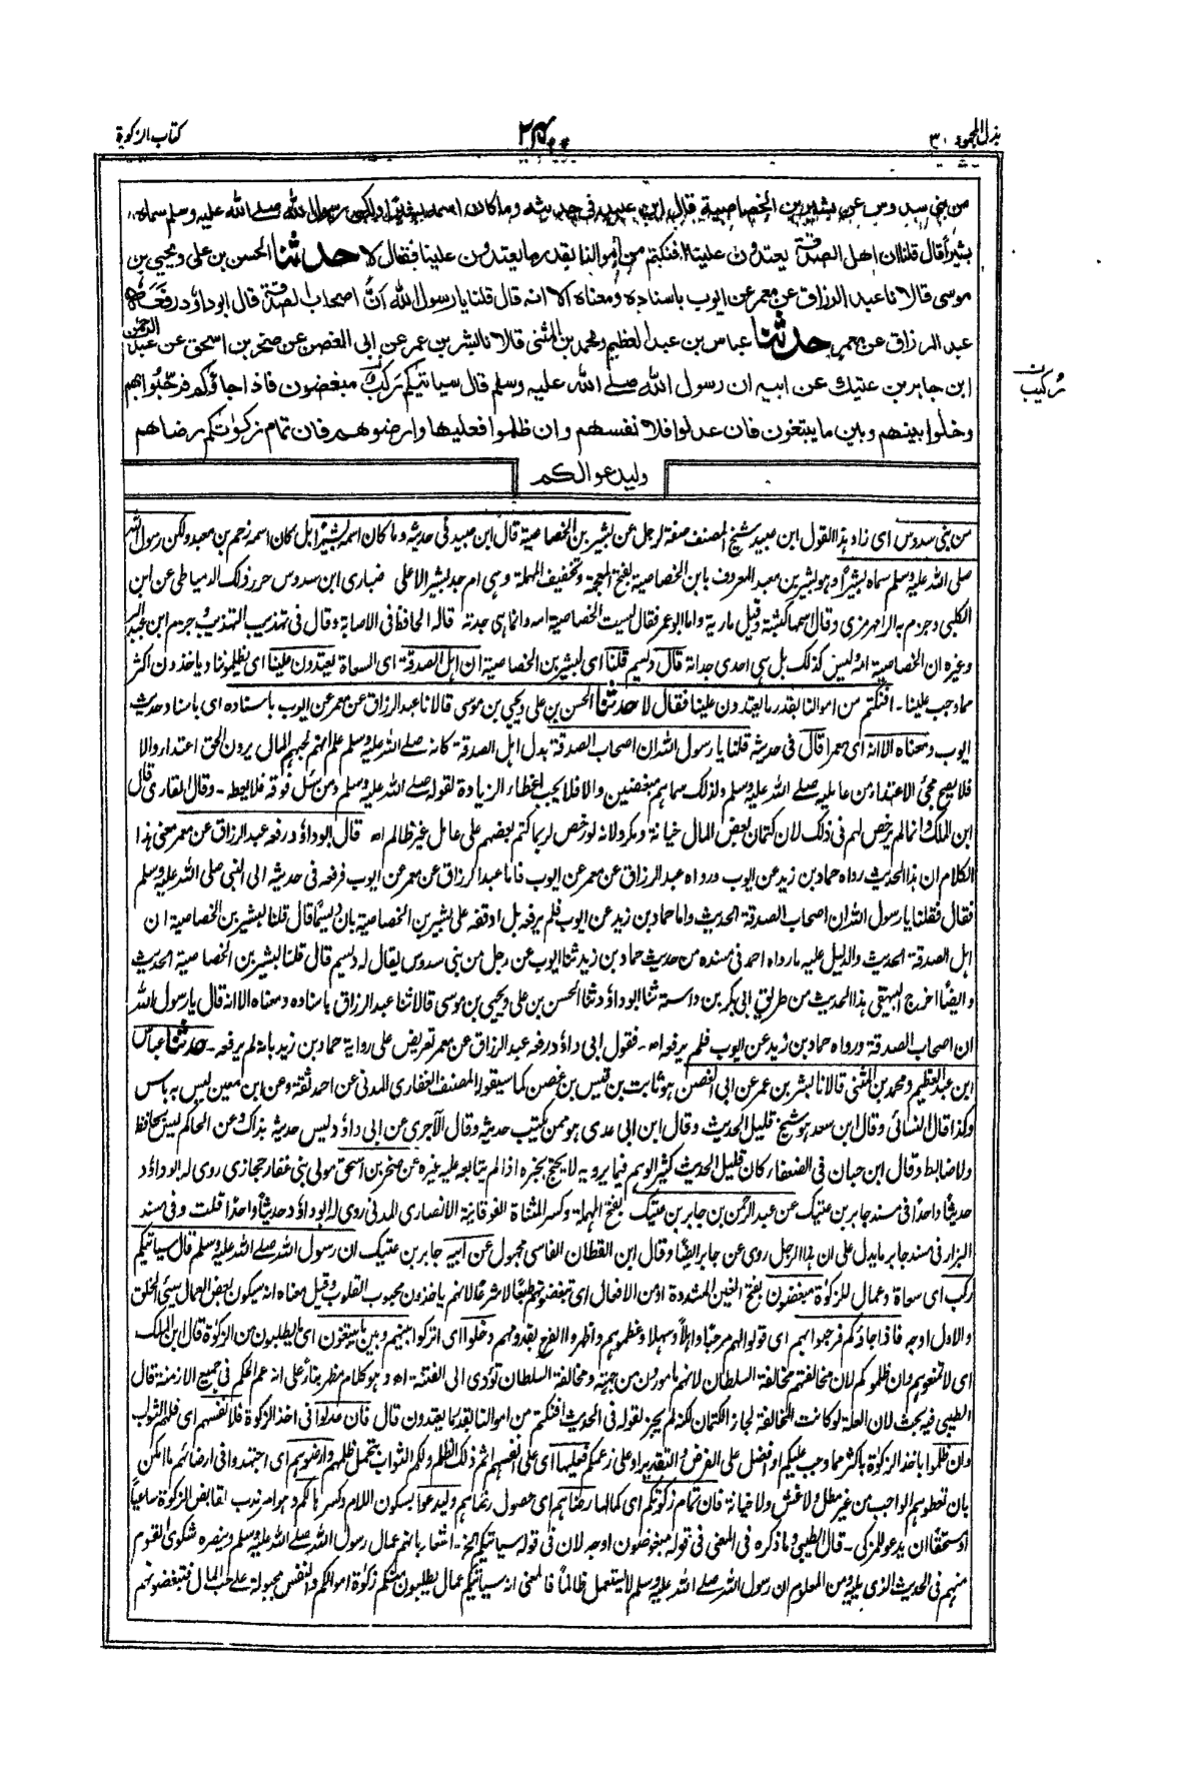 بذل المجهود ٣٠
كتاب الزكوة
من بني سدوس عن بشير بن الخصاصية قال ابن عبيد في حديثه وما كان اسمه بشيرا ولكن رسول الله صلے الله عليه وسلم سماه
بشيرا قال قلنا ان اهل الصدقة يعتدون علينا افنكتم من اموالنا بقدر ما يعتدون علينا فقال لا حدثنا الحسن بن على ويحيى بن
موسى قالا نا عبد الرزاق عن معمر عن ايوب باسناده ومعناه الا انه قال قلنا يا رسول الله ان اصحاب الصدقة قال ابو داؤد رفعه
عبد الرزاق عن معمر حدثنا عباس بن عبد العظيم ومحمد بن المثنى قالا نا بشر بن عمر عن ابى الغصن عن صخر بن اسحق عن عبد الرحمن
ابن جابر بن عتيك عن ابيه ان رسول الله صلے الله عليه وسلم قال سياتيكم ركب مبغضون فاذا جاؤكم فرحبوا بهم
ركيب
وخلوا بينهم وبين ما يبتغون فان عدلوا فلانفسهم وان ظلموا فعليها وارضوهم فان تمام زكوتكم رضاهم
وليدعوا لكم
من بنى سدوس اى زاد هذا القول ابن عبيد شيخ المصنف صفة لرجل عن بشير بن الخصاصية قال ابن عبيد فى حديثه وما كان اسمه بشيرا بل كان اسمه زحم بن معبد ولكن رسول الله
صلى الله عليه وسلم سماه بشيرا وهو بشير بن معبد المعروف بابن الخصاصية بفتح المعجمة وتخفيف المهملة وهى ام جد بشير الاعلى ضبارى ابن سدوس حرر ذلك الدمياطى عن ابن
الكلبى وجزم به الرامهرمزى وقال اسمها كبشة وقيل مارية واما ابو عمر فقال ليست الخصاصية امه وانما هى جدته قاله الحافظ فى الاصابة وقال فى تهذيب التهذيب جزم ابن عبد البر
وغيره ان الخصاصية امه وليس كذلك بل هى احدى جداته قال ديسم قلنا اى لبشير بن الخصاصية ان اهل الصدقة اى السعاة يعتدون علينا اى يظلموننا وياخذون اكثر
مما وجب علينا - افنكتم من اموالنا بقدر ما يعتدون علينا فقال لا حدثنا الحسن بن على ويحيى بن موسى قالا نا عبد الرزاق عن معمر عن ايوب باسناده اى باسناد حديث
ايوب ومعناه الا انه اى معمرا قال فى حديثه قلنا يا رسول الله ان اصحاب الصدقة بدل اهل الصدقة كانه صلے الله عليه وسلم علم انهم لحبهم المال يرون الحق اعتداء والا
فلا يصح مجئ الاعتداء من عامليه صلے الله عليه وسلم ولذلك سماهم مبغضين والا فلا يجب اعطاء الزيادة لقوله صلے الله عليه وسلم ومن سئل فوقه فلا يعطه - وقال القارى قال
ابن الملك وانما لم يرخص لهم فى ذلك لان كتمان بعض المال خيانة ومكر ولانه لو رخص لربما كتم بعضهم على عامل غير ظالم اه قال ابو داؤد رفعه عبد الرزاق عن معمر معنى هذا
الكلام ان هذا الحديث رواه حماد بن زيد عن ايوب ورواه عبد الرزاق عن معمر عن ايوب فاما عبد الرزاق عن معمر عن ايوب فرفعه فى حديثه الى النبى صلى الله عليه وسلم
فقال فقلنا يا رسول الله ان اصحاب الصدقة الحديث واما حماد بن زيد عن ايوب فلم يرفعه بل اوقفه على بشير بن الخصاصية بان ديسما قال قلنا لبشير بن الخصاصية ان
اهل الصدقة الحديث والدليل عليه ما رواه احمد فى مسنده من حديث حماد بن زيد ثنا ايوب عن رجل من بنى سدوس يقال له ديسم قال قلنا لبشير بن الخصاصية الحديث
وايضا اخرج البيهقى هذا الحديث من طريق ابى بكر بن داسة ثنا ابو داؤد ثنا الحسن بن على ويحيى بن موسى قالا ثنا عبد الرزاق باسناده ومعناه الا انه قال يا رسول الله
ان اصحاب الصدقة ورواه حماد بن زيد عن ايوب فلم يرفعه اه - فقول ابى داؤد رفعه عبد الرزاق عن معمر تعريض على رواية حماد بن زيد بانه لم يرفعه - حدثنا عباس
ابن عبد العظيم ومحمد بن المثنى قالا نا بشر بن عمر عن ابى الغصن هو ثابت بن قيس بن غصن كما سيقوله المصنف الغفارى المدنى عن احمد ثقة وعن ابن معين ليس به باس
وكذا قال النسائى وقال ابن سعد هو شيخ قليل الحديث وقال ابن ابى عدى هو ممن يكتب حديثه وقال الآجرى عن ابى داؤد ليس حديثه بذاك وعن الحاكم ليس بحافظ
ولا ضابط وقال ابن حبان فى الضعفاء كان قليل الحديث كثير الوهم فيما يرويه لا يحتج بخبره اذا لم يتابعه عليه غيره عن صخر بن اسحق مولى بنى غفار حجازى روى له ابو داؤد
حديثا واحدا فى مسند جابر بن عتيك عن عبد الرحمن بن جابر بن عتيك بفتح المهملة وكسر المثناة الفوقانية الانصارى المدنى روى له ابو داؤد حديثا واحدا قلت وفى مسند
البزار فى مسند جابر ما يدل على ان هذا الرجل روى عن جابر ايضا وقال ابن القطان الفاسى مجهول عن ابيه جابر بن عتيك ان رسول الله صلے الله عليه وسلم قال سياتيكم
ركب اى سعاة وعمال للزكوة مبغضون بفتح الغين المشددة او من الافعال اى تبغضونهم طبعا لا شرعا لانهم ياخذون محبوب القلوب وقيل معناه انه سيكون بعض العمال سيئ الخلق
والاول اوجه فاذا جاؤكم فرحبوا بهم اى قولوا لهم مرحبا واهلا وسهلا وعظموهم واظهروا الفرح بقدومهم وخلوا اى اتركوا بينهم وبين ما يبتغون اى يطلبون من الزكوة قال ابن الملك
اى لا تمنعوهم وان ظلموكم لان مخالفتهم مخالفة السلطان لانهم مامورون من جهته ومخالفة السلطان تؤدى الى الفتنة اه وهو كلام مظهر بناء على انه عم الحكم فى جميع الازمنة قال
الطيبى فيه بحث لان العلة لو كانت المخالفة لجاز الكتمان لكنه لم يجز لقوله فى الحديث افنكتم من اموالنا بقدر ما يعتدون قال فان عدلوا فى اخذ الزكوة فلانفسهم اى فلهم الثواب
وان ظلموا باخذ الزكوة باكثر مما وجب عليكم او افضل على الفرض والتقدير او على زعمكم فعليها اى على انفسهم اثم ذلك الظلم ولكم الثواب بتحمل ظلمهم وارضوهم اى اجتهدوا فى ارضائهم ما امكن
بان تعطوهم الواجب من غير مطل ولا غش ولا خيانة فان تمام زكوتكم اى كمالها رضاهم اى حصول رضاهم وليدعوا بسكون اللام وكسرها لكم وهو امر ندب لقابض الزكوة ساعيا
او مستحقا ان يدعو للمزكى - قال الطيبى وما ذكره فى المعنى فى قوله مبغوضون اوجه لان فى قوله سياتيكم الخ - اشعار بانهم عمال رسول الله صلے الله عليه وسلم وينصره شكوى القوم
منهم فى الحديث الذى يليه ومن المعلوم ان رسول الله صلے الله عليه وسلم لا يستعمل ظالما فالمعنى انه سياتيكم عمال يطلبون منكم زكوة اموالكم والنفس مجبولة على حب المال فتبغضونهم